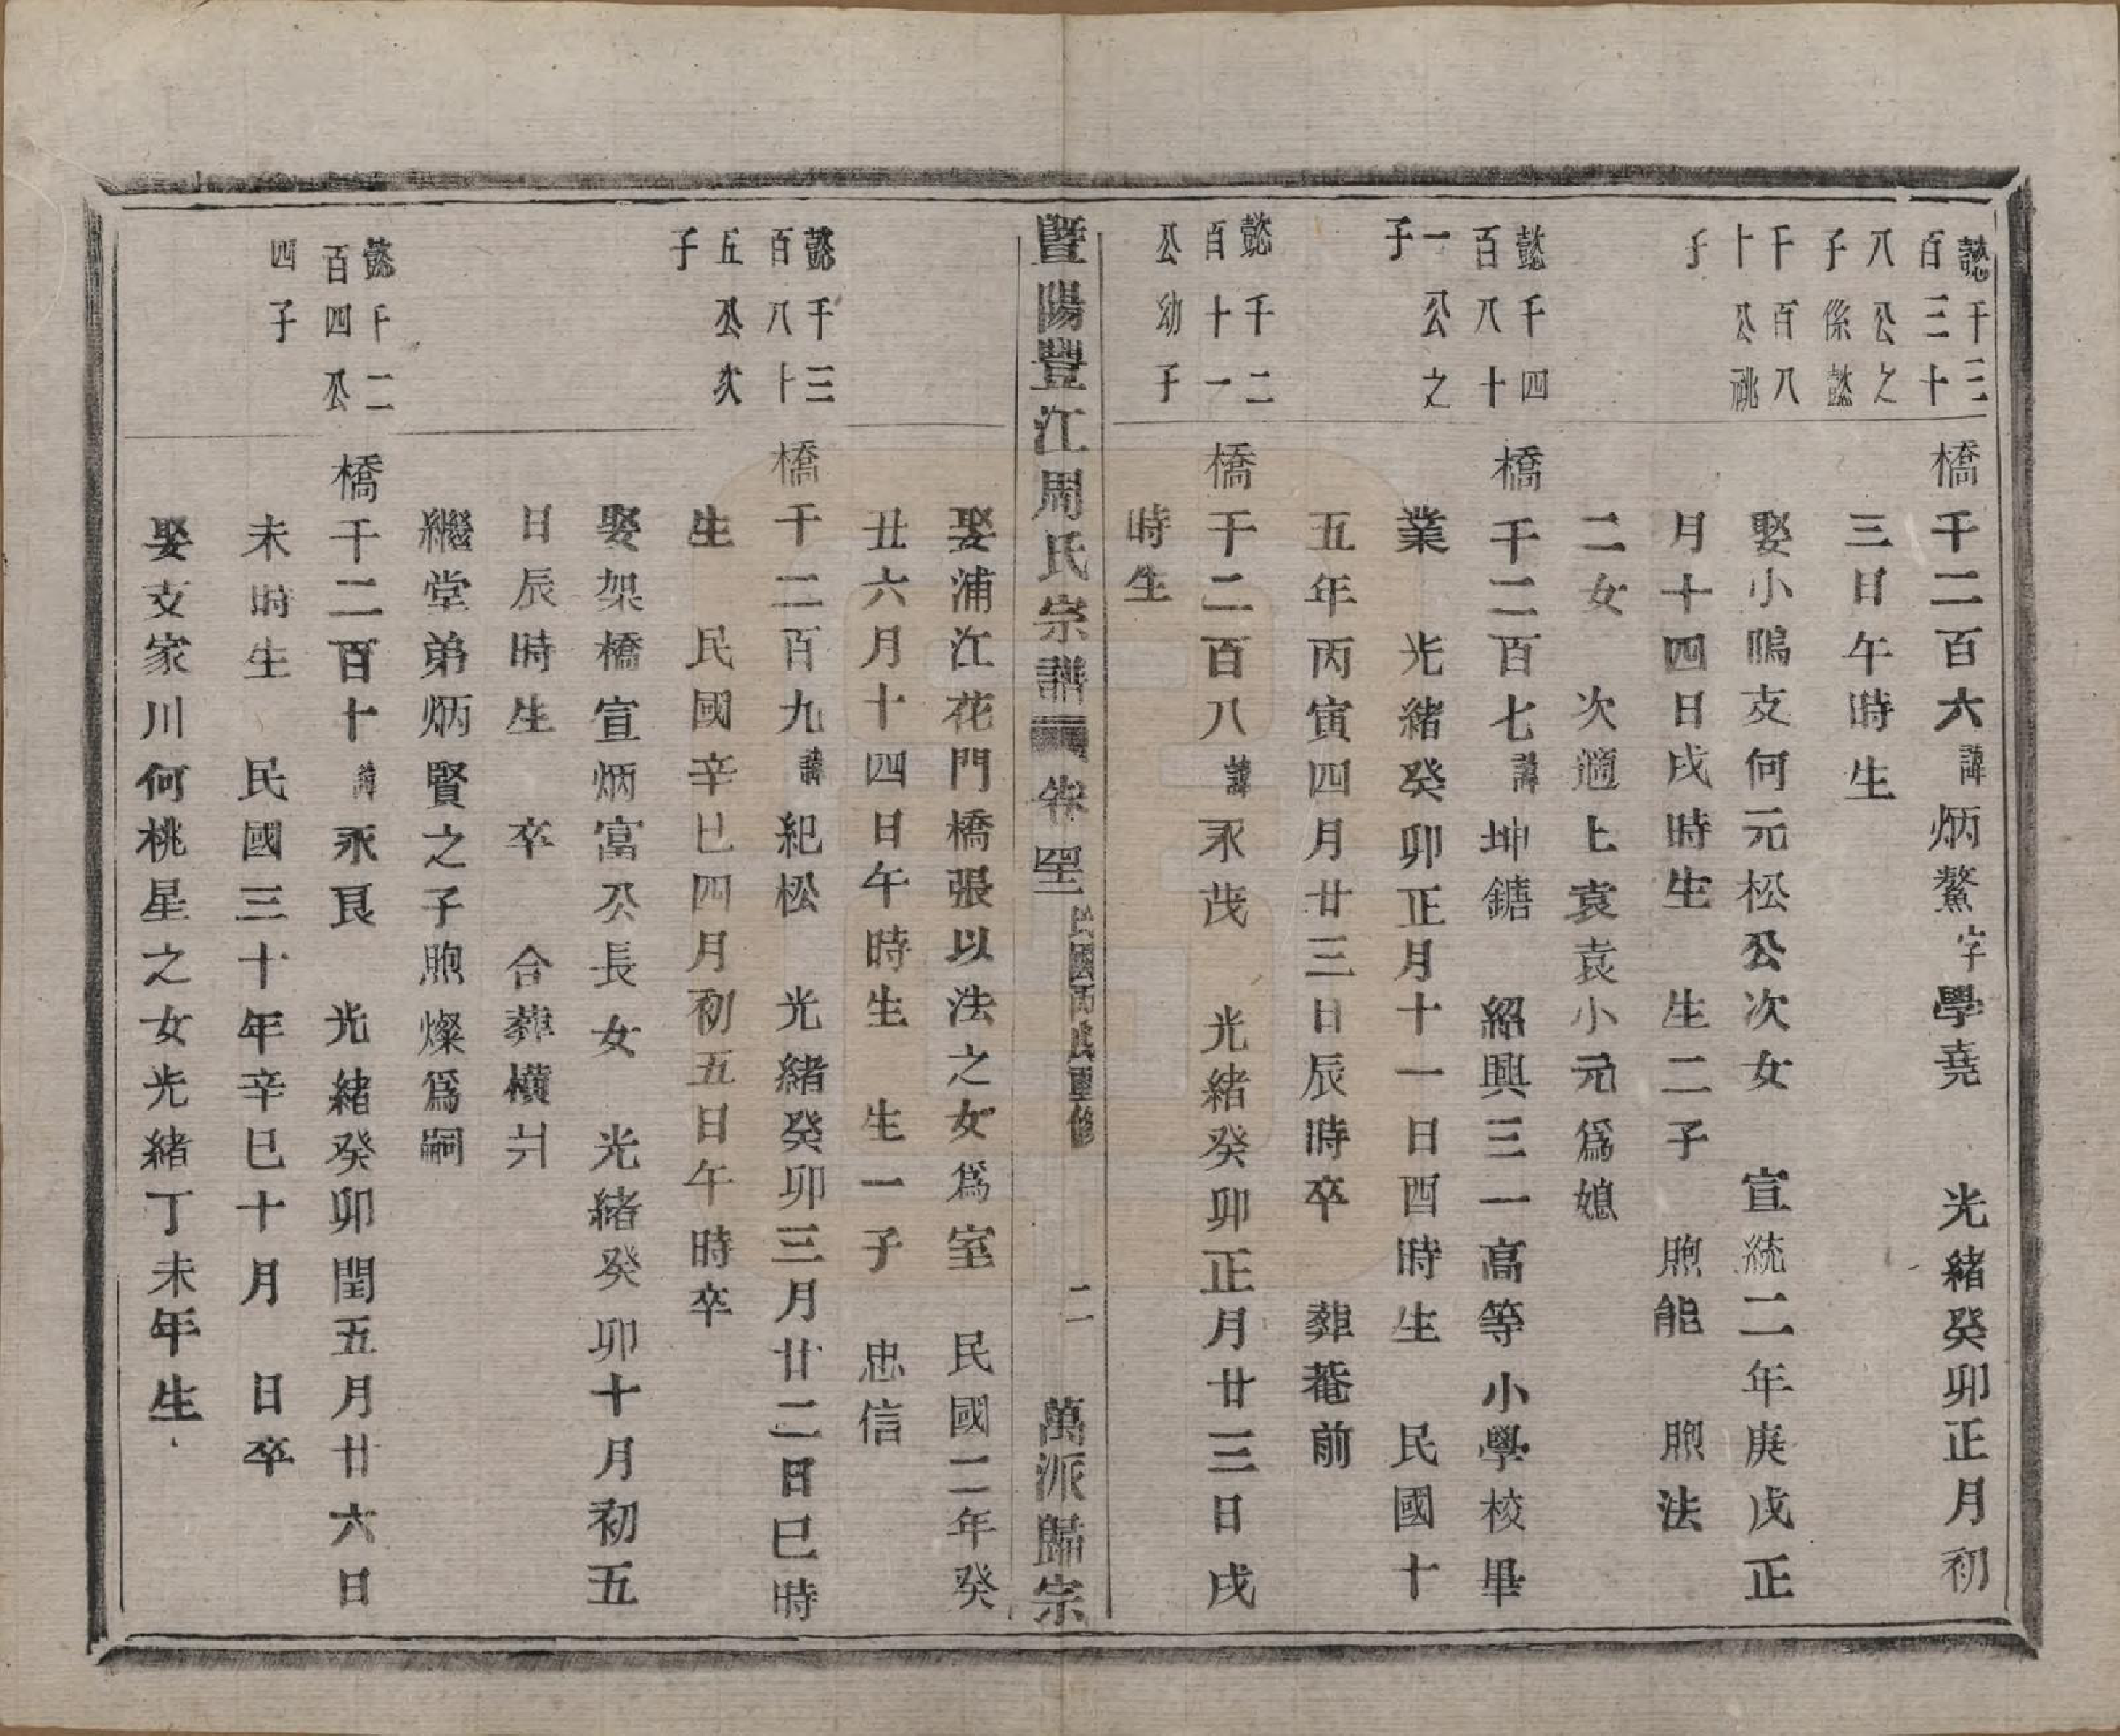 懿千三百三十八公之子係懿千百八十公祧子
橋千二百六諱炳鰲字學堯　光緒癸卯正月初
三日午時生
娶小鴨支何元松公次女　宣統二年庚戌正
月十四日戌時生　生二子　煦能　煦法
二女　次適上袁袁小元爲媳
懿千四百八十一公之子
橋千二百七諱坤鏞　紹興三一高等小學校畢
業　光緒癸卯正月十一日酉時生　民國十
五年丙寅四月廿三日辰時卒　葬菴前
懿千二百十一公幼子
橋千二百八諱永茂　光緒癸卯正月廿三日戌
時生
暨陽豐江周氏宗譜　卷　民國　重修　二　萬派歸宗
娶浦江花門橋張以法之女爲室　民國二年癸
丑六月十四日午時生　生一子　忠信
懿千三百八十五公次子
橋千二百九諱紀松　光緒癸卯三月廿二日巳時
生　民國辛巳四月初五日午時卒
娶架橋宣炳富公長女　光緒癸卯十月初五
日辰時生　卒　合葬橫爿
繼堂弟炳賢之子煦燦爲嗣
懿千二百四公四子
橋千二百十諱永艮　光緒癸卯閏五月廿六日
未時生　民國三十年辛巳十月　日卒
娶支家川何桃星之女光緒丁未年生